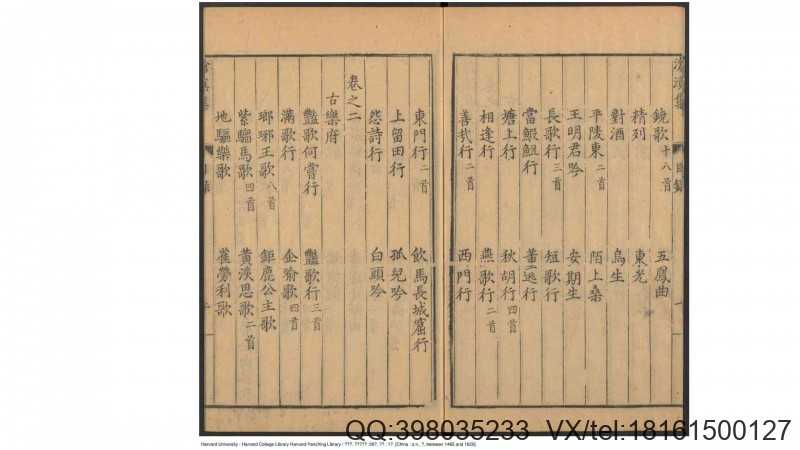 滄溟集 目錄
鐃歌十八首 五鳳曲
精列 東光
對酒 烏生
平陵東二首 陌上桑
王明君吟 安期生
長歌行三首 短歌行
當鰕䱇行 董逃行
塘上行 秋胡行四首
相逢行 燕歌行二首
善哉行二首 西門行
東門行二首 飲馬長城窟行
上留田行 孤兒吟
怨詩行 白頭吟
卷之二
古樂府
豔歌何嘗行 豔歌行三首
滿歌行 企喻歌四首
瑯琊王歌八首 鉅鹿公主歌
紫騮馬歌四首 黃淡思歌二首
地驅樂歌 雀勞利歌
QQ:398035233 VX/tel:18161500127
Harvard University - Harvard College Library Harvard-Yenching Library